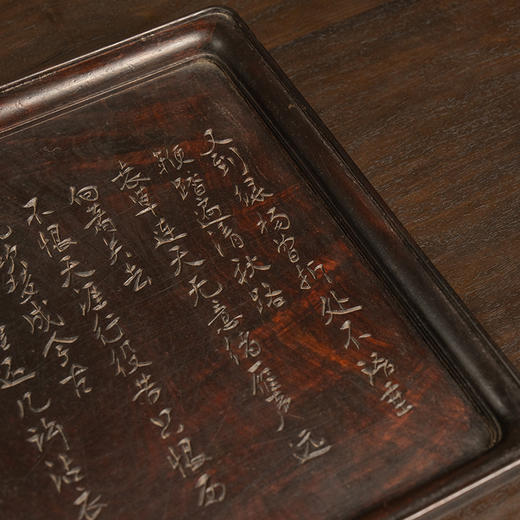 又到绿杨曾折处不语垂
鞭踏遍清秋路
衰草连天无意绪雁声远
向萧关去
不恨天涯行役苦只恨西
吹梦成今古
还几许沾衣